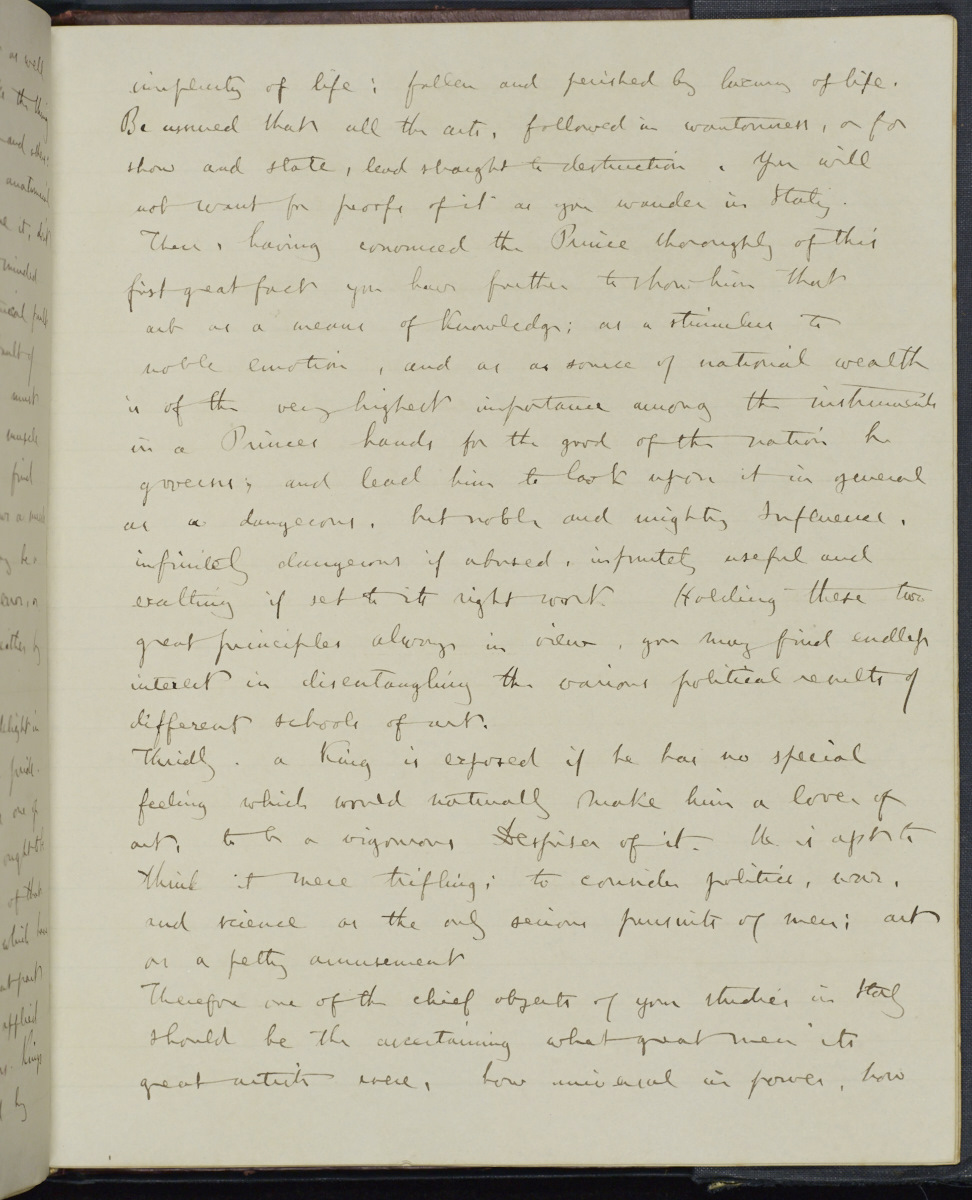 simplicity of life; fallen and perished by luxury of life.
Be assured that all the arts, followed in wantonness, or for
show and state, lead straight to destruction. You will
not want for proofs of it as you wander in Italy.
Then, having convinced the Prince thoroughly of this
first great fact you have further to show him that
art as a means of Knowledge; as a stimulus to
noble emotion, and as a source of national wealth
is of the very highest importance among the instruments
in a Princes hands for the good of the nation he
governs; and lead him to look upon it in general
as a dangerous, but noble and mighty Influence,
infinitely dangerous if abused, infinitely useful and
exalting if set to its right work. Holding these two
great principles always in view, you may find endless
interest in disentangling the various political results of
different schools of art.
Thirdly. a King is exposed if he has no special
feeling which would naturally make him a lover of
art, to be a vigorous Despiser of it. He is apt to
think it mere trifling; to consider politics, war,
and science as the only serious pursuits of men; art
as a petty amusement
Therefore one of the chief objects of your studies in Italy
should be the ascertaining what great men its
great artists were, how universal in power, how